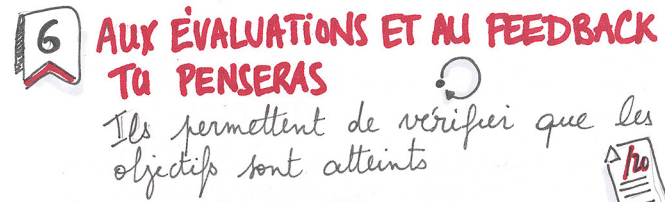 6 AUX ÉVALUATIONS ET AU FEEDBACK
TU PENSERAS
Ils permettent de vérifier que les
objectifs sont atteints
/20